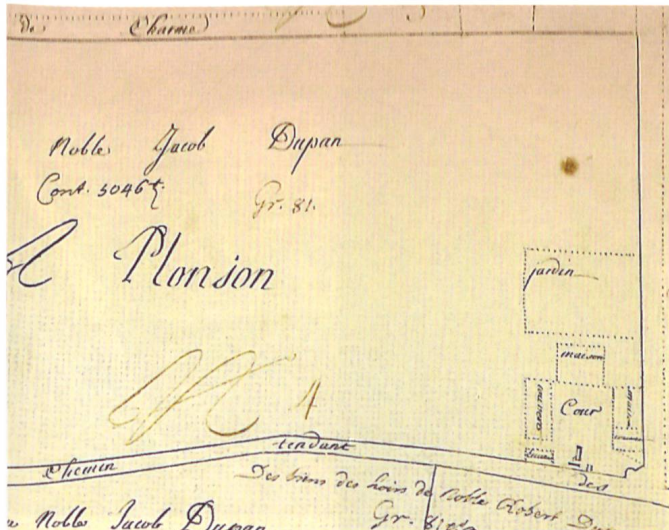 de Charme
Noble Jacob Dupan
Cont. 5046
Gr. 81.
Plonjon
jardin
maison
Cour
4
tendant
Chemin
des
Des biens des hoirs de Noble Robert
Noble Jacob Dupan
Gr.